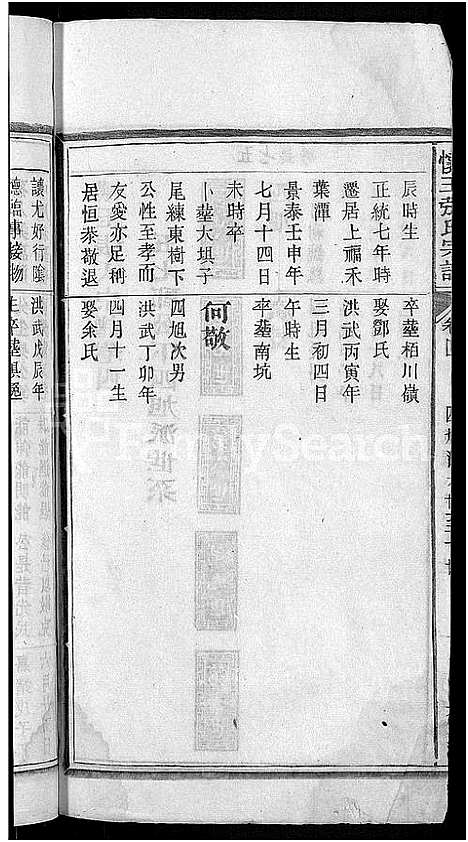 懷玉張氏宗譜
卷四
辰時生
正統七年時
遷居上福禾
葉潭
景泰壬申年
七月十四日
未時卒
卜塟大垻子
尾練東樹下
公性至孝而
友愛亦足稱
居恒恭敬退
讓尤好行陰
德臨事接物
卒塟栢川嶺
娶鄧氏
洪武丙寅年
三月初四日
卒塟南坑
何敬
四旭次男
洪武丁卯年
四月十一生
娶余氏
洪武戊辰年
生卒塟俱逸
FamilySearch